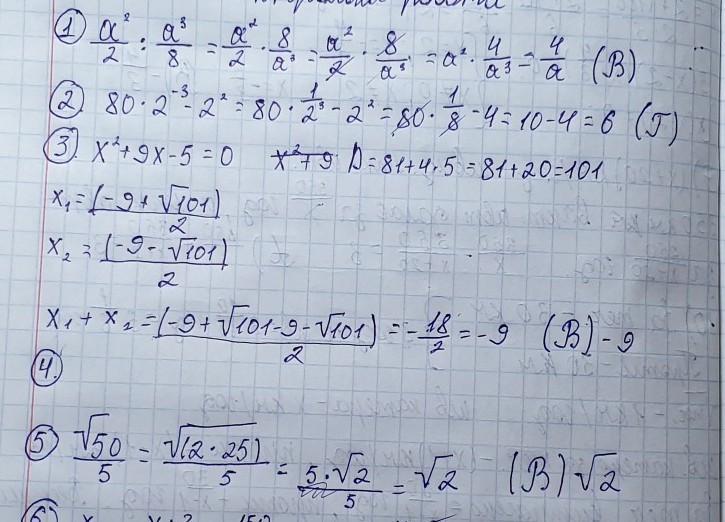 ① a²/2 : a³/8 = a²/2 · 8/a³ = a²/2 · 8/a³ = a² · 4/a³ = 4/a (В)
② 80 · 2⁻³ - 2² = 80 · 1/2³ - 2² = 80 · 1/8 - 4 = 10 - 4 = 6 (Г)
③ x² + 9x - 5 = 0 x² + 9 D = 81 + 4 · 5 = 81 + 20 = 101
x₁ = (-9 + √101)/2
x₂ = (-9 - √101)/2
x₁ + x₂ = (-9 + √101 - 9 - √101)/2 = -18/2 = -9 (В) - 9
④.
⑤ √50/5 = √(2 · 25)/5 = 5 · √2/5 = √2 (В) √2